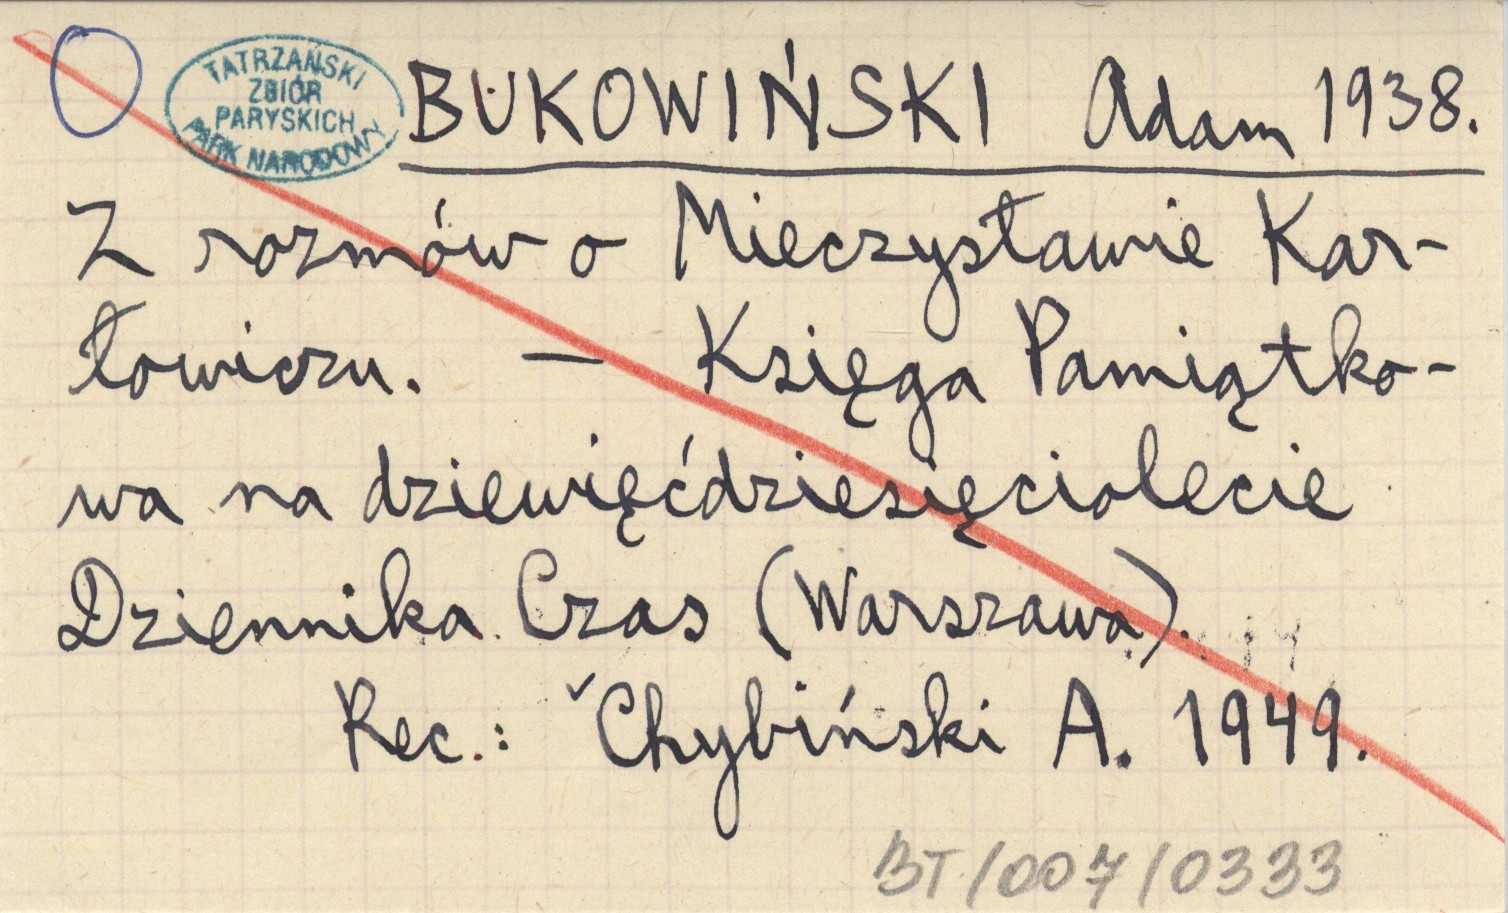 TATRZAŃSKI
ZBIÓR
PARYSKICH
PARK NARODOWY
BUKOWIŃSKI Adam 1938.
Z rozmów o Mieczysławie Kar-
łowiczu. — Księga Pamiątko-
wa na dziewięćdziesięciolecie
Dziennika Czas (Warszawa).
Rec.: ˇChybiński A. 1949.
BT/007/0333